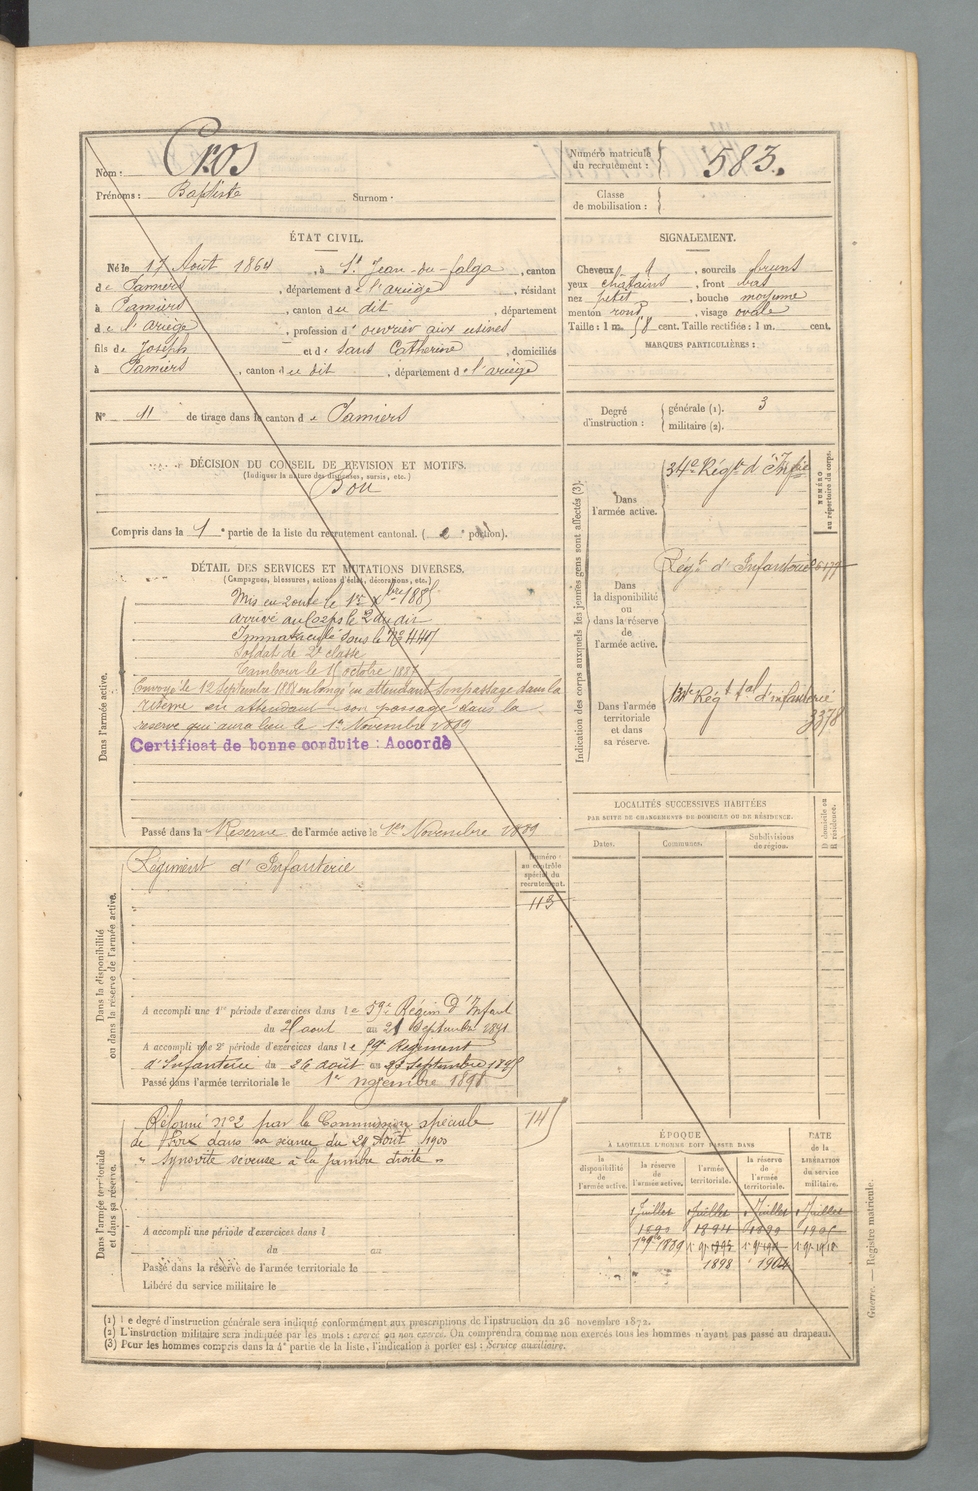 Nom : Cros
Prénoms : Baptiste Surnom :
Numéro matricule du recrutement : 583.
Classe de mobilisation :
ÉTAT CIVIL.
Né le 17 Août 1864, à St Jean-du-falga, canton
de Pamiers, département de l'ariège, résidant
à Pamiers, canton du dit, département
de l'ariège, profession d'ouvrier aux usines
fils de Joseph et de Sans Catherine, domiciliés
à Pamiers, canton du dit, département de l'ariège
N° 11 de tirage dans le canton de Pamiers
SIGNALEMENT.
Cheveux, sourcils bruns
yeux chatains, front bas
nez petit, bouche moyenne
menton rond, visage ovale
Taille : 1 m. 58 cent. Taille rectifiée : 1 m. cent.
MARQUES PARTICULIÈRES :
Degré d'instruction : générale (1). 3
militaire (2).
DÉCISION DU CONSEIL DE REVISION ET MOTIFS.
(Indiquer la nature des dispenses, sursis, etc.)
Bon
Compris dans la 1e partie de la liste du recrutement cantonal. (2e portion).
DÉTAIL DES SERVICES ET MUTATIONS DIVERSES.
(Campagnes, blessures, actions d'éclat, décorations, etc.)
Dans l'armée active.
Mis en route le 1er Xbre 1885
arrivé au Corps le 2 du dit
Immatriculé sous le No 4407
Soldat de 2e classe
Tambour le octobre 1887
Envoyé le 12 Septembre 1888 en congé en attendant son passage dans la
réserve en attendant son passage dans la
réserve qui aura lieu le 1er Novembre 1889
Certificat de bonne conduite : Accordé
Passé dans la Réserve de l'armée active le 1er Novembre 1889
Indication des corps auxquels les jeunes gens sont affectés (3).
NUMÉRO au répertoire du corps.
Dans l'armée active. 34e Régt d'Infie
Dans la disponibilité ou dans la réserve de l'armée active. Régt d'Infanterie
Dans l'armée territoriale et dans sa réserve. 134e Régt tal d'infanterie 3378
LOCALITÉS SUCCESSIVES HABITÉES
PAR SUITE DE CHANGEMENTS DE DOMICILE OU DE RÉSIDENCE.
Dates. Communes. Subdivisions de région. D domicile ou R résidence.
Dans la disponibilité ou dans la réserve de l'armée active.
Régiment d'Infanterie
Numéro au contrôle spécial du recrutement.
113
A accompli une 1re période d'exercices dans le 59e Régim D'Infant
du aout au 21 Septembre 1891
A accompli une 2e période d'exercices dans le 59e Regiment
d'Infanterie du 26 août au 22 Septembre 1895
Passé dans l'armée territoriale le 1er novembre 1898
Dans l'armée territoriale et dans sa réserve.
Réformé no 2 par la Commission spéciale
de Foix dans sa séance du 29 Août 1900
" synovite séreuse à la jambe droite "
145
A accompli une période d'exercices dans l
du au
Passé dans la réserve de l'armée territoriale le
Libéré du service militaire le
ÉPOQUE
À LAQUELLE L'HOMME DOIT PASSER DANS
la disponibilité de l'armée active. la réserve de l'armée active. l'armée territoriale. la réserve de l'armée territoriale.
DATE de la LIBÉRATION du service militaire.
Juillet Juillet Juillet Juillet
1890 1894 1899 1905
1er 9bre 1889
1898 1904
(1) Le degré d'instruction générale sera indiqué conformément aux prescriptions de l'instruction du 26 novembre 1872.
(2) L'instruction militaire sera indiquée par les mots : exercé ou non exercé. On comprendra comme non exercés tous les hommes n'ayant pas passé au drapeau.
(3) Pour les hommes compris dans la 4e partie de la liste, l'indication à porter est : Service auxiliaire.
Guerre. — Registre matricule.